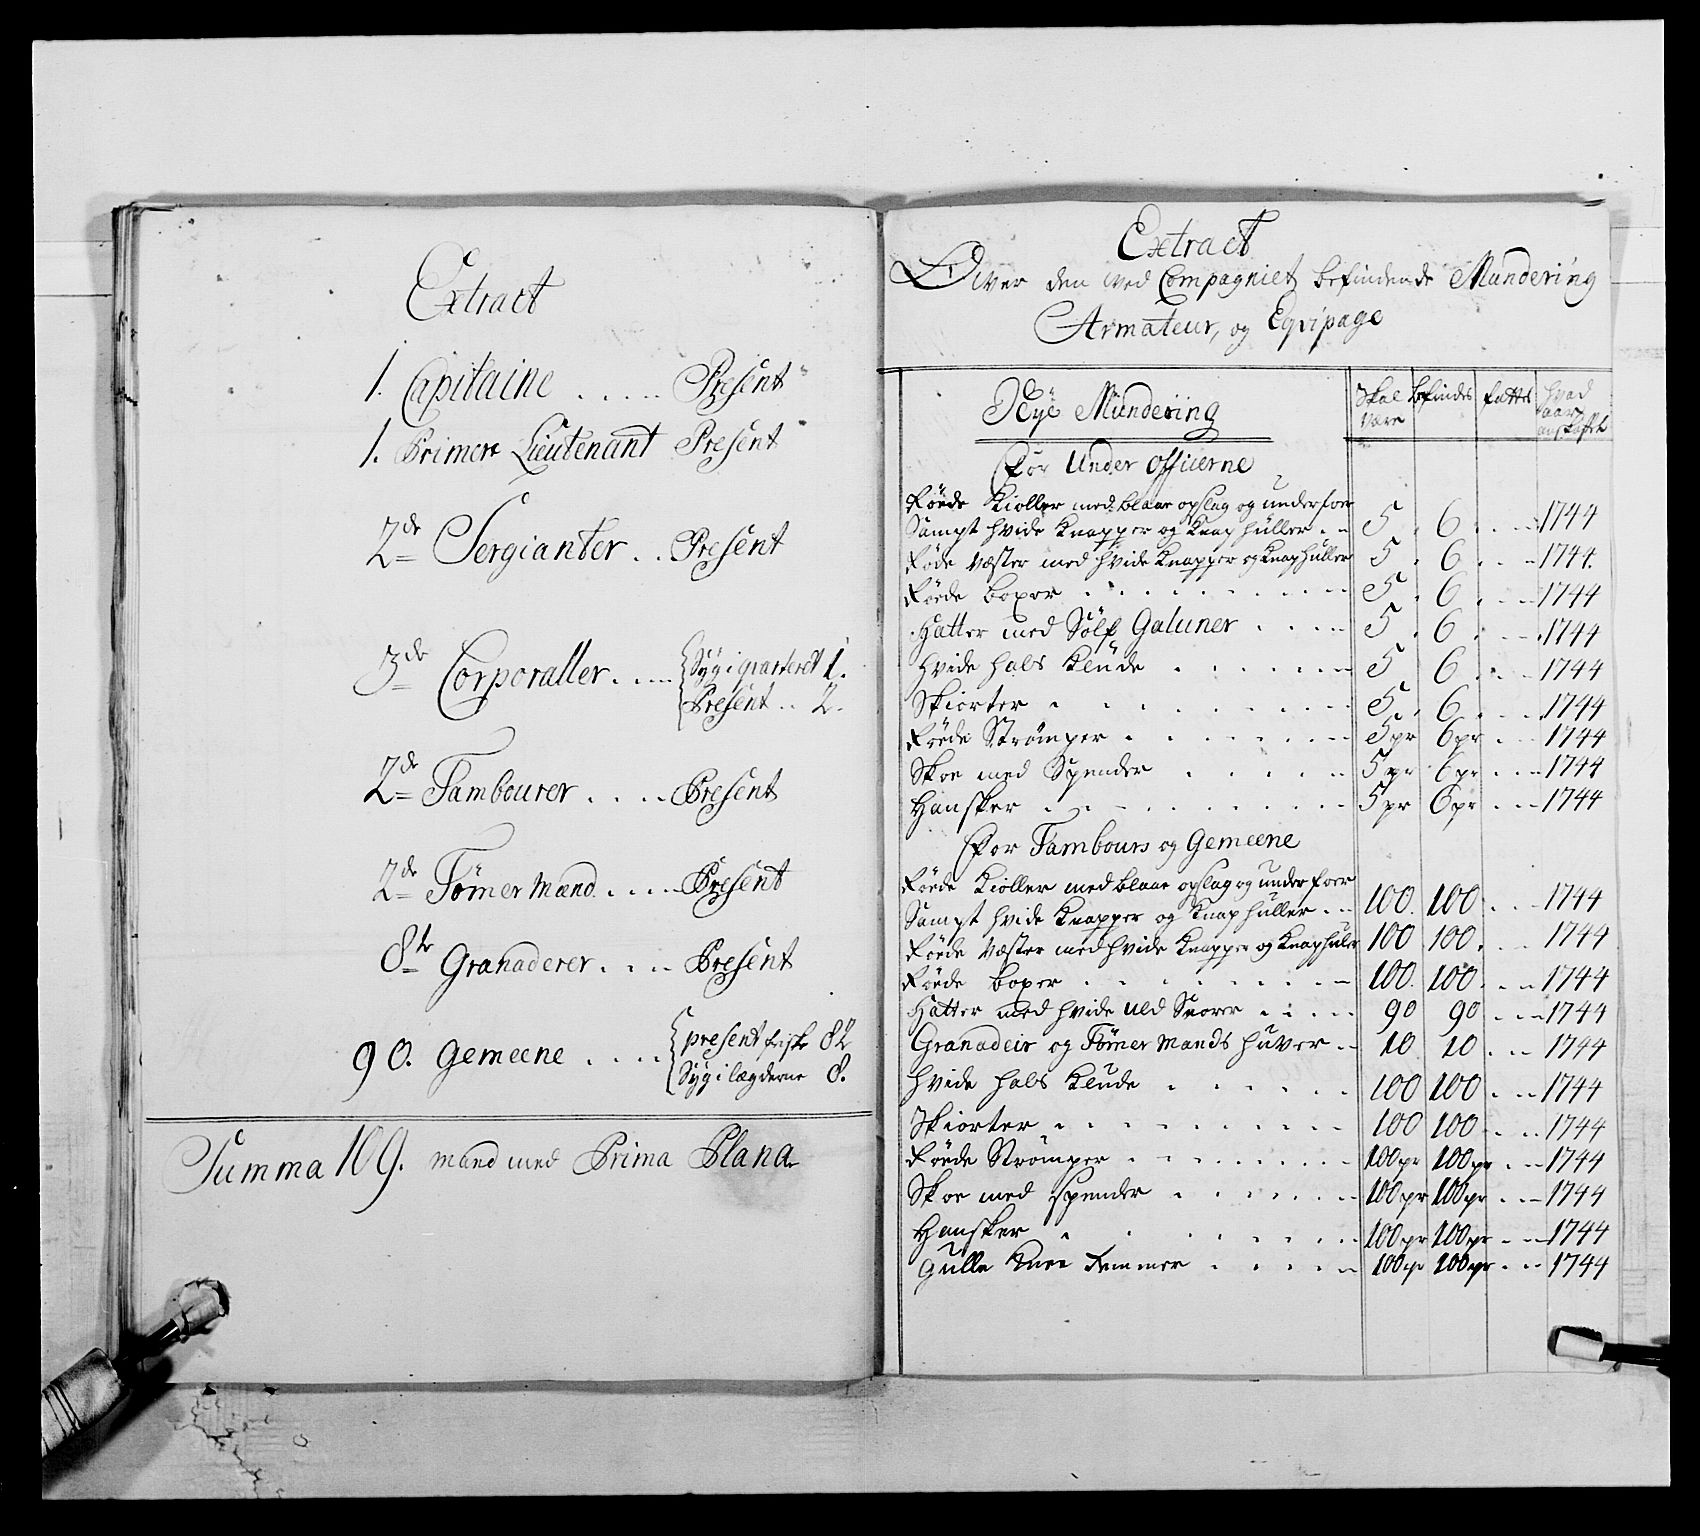 Extract
1. Capitaine ..... Present
1. Primer Lieutenant Present
2de Sergianter .. Present
3de Corporaller .... Syg i qvarteret 1.
Present .. 2.
2de Tambourer .... Present
2de Tømermænd .... Present
8te Granaderer .... Present
90. Gemeene .... present friske 82
Syg i lægderne 8.
Summa 109. mand med Prima Plana
Extract
Over den ved Compagniet befindende Mundering
Armateur, og Eqvipage
Nye Mundering Skal være befindes fattes hvad aar anskaffet
For Under Officerne
Røede Kioller med blaae opslag og underfoer
Sampt hvide Knapper og Knaphuller .. 5 . 6 . . . 1744
Røde Væster med hvide Knapper og Knaphuller 5 . 6 . . . 1744.
Røede boxer . . . . 5 . 6 . . . 1744
Hatter med Sølf Galuner . . . . 5 . 6 . . . 1744
Hvide hals Klude . . . . 5 . 6 . . . 1744
Skiorter . . . . 5 . 6 . . . 1744
Røede Strømper . . . . 5pr 6pr . . . 1744
Skoe med Spender . . . . 5pr 6pr . . . 1744
Hansker . . . . 5pr 6pr . . . 1744
For Tambours og Gemeene
Røede Kioller med blaae opslag og underfoer
Sampt hvide Knapper og Knaphuller . . 100. 100 . . . 1744
Røede Væster med hvide Knapper og Knaphuler 100 100. . . 1744
Røede boxer . . . . 100. 100. . . 1744
Hatter med hvide uld Snorer . . . . 90 90 . . . 1744
Granadeir og Tømermands huver . . 10 10 . . . 1744
Hvide hals Klude . . . . 100 100 . . . 1744
Skiorter . . . . 100 100 . . . 1744
Røede Strømper . . . . 100pr 100pr . . . 1744
Skoe med spender . . . . 100pr 100pr . . . 1744
Hansker . . . . 100pr 100pr . . . 1744
Gulle Knee Remmer . . . . 100pr 100pr . . . 1744